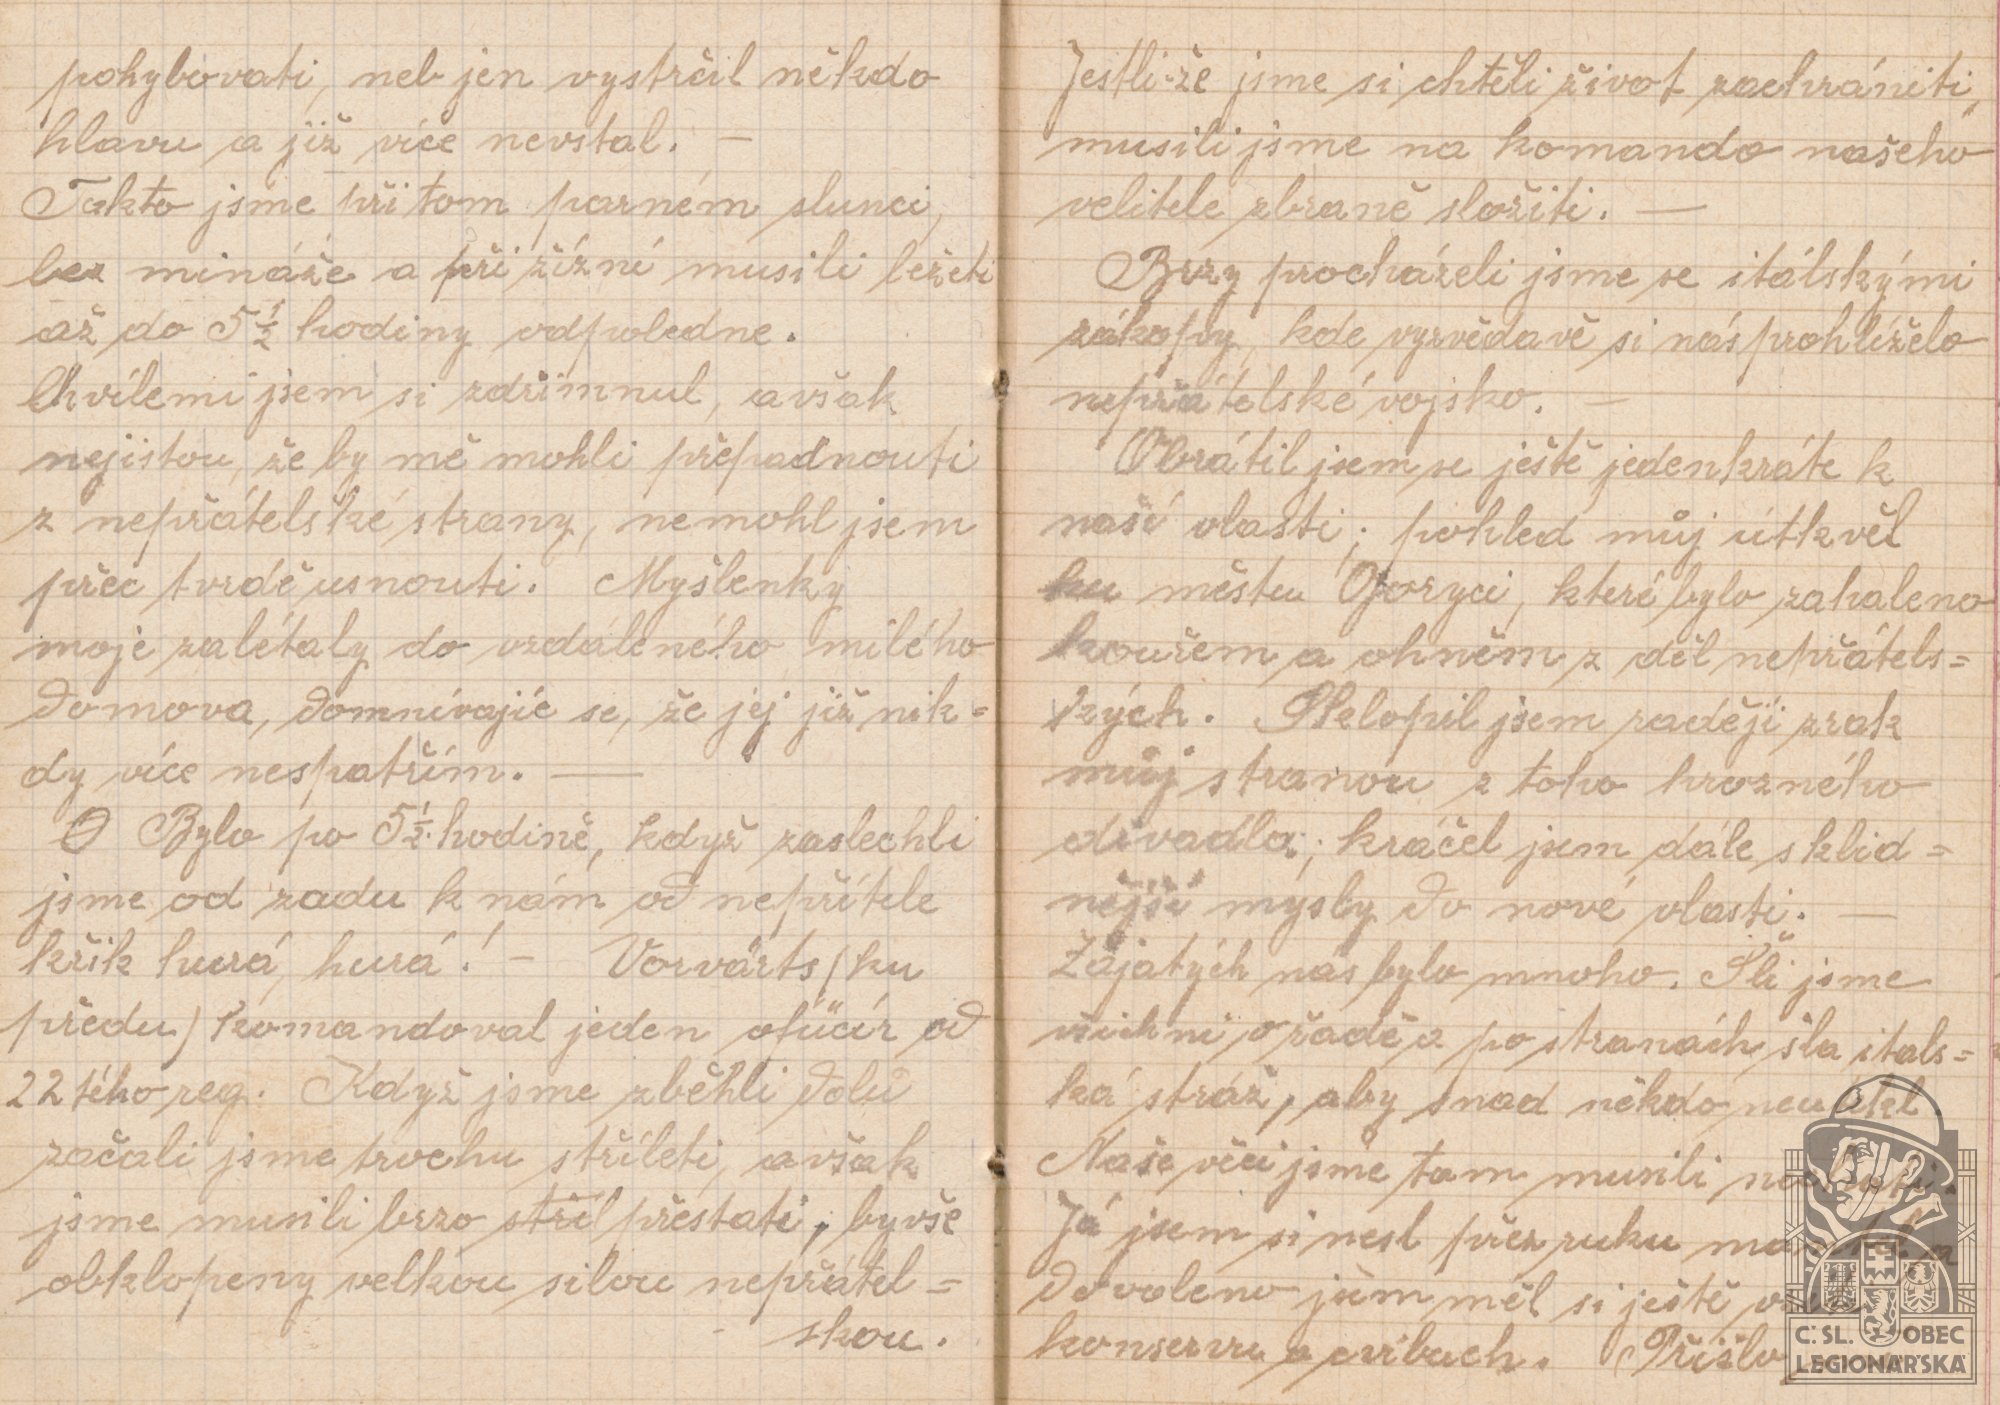 pohybovati, neb jen vystrčil někdo
hlavu a již více nevstal. —
Takto jsme při tom parném slunci,
bez mináže a při žízni musili ležeti
až do 5 1/2 hodiny odpoledne.
Chvílemi jsem si zdřímnul, avšak
nejistou, že by mě mohli přepadnouti
z nepřátelské strany, nemohl jsem
přec tvrdě usnouti. Myšlenky
moje zalétaly do vzdáleného milého
domova, domnívajíc se, že jej již nik=
dy více nespatřím. —
Bylo po 5 1/2 hodině, když zaslechli
jsme od zadu k nám od nepřítele
křik hurá, hurá! – Vorvärts (ku
předu) komandoval jeden ofücír od
22 tého reg. Když jsme zběhli dolů
začali jsme trochu stříleti, avšak
jsme musili brzo stříl přestati, byvše
obklopeny velkou silou nepřátel=
skou.
Jestli-že jsme si chtěli život zachrániti,
musili jsme na komando našeho
velitele zbraně složiti. —
Brzy procházeli jsme se itálskými
zákopy, kde vyzvědavě si nás prohlíželo
nepřátelské vojsko. —
Obrátil jsem se ještě jedenkráte k
naší vlasti; pohled můj útkvěl
ku městu Goryci, které bylo zahaleno
kouřem a ohněm z děl nepřátels=
kých. Sklopil jsem raději zrak
můj stranou z toho hrozného
divadla; kráčel jsem dále sklid=
nější mysly do nové vlasti. —
Zajatých nás bylo mnoho. Šli jsme
všichni v řadě a po stranách šla itals=
ká stráž, aby snad někdo neutekl
Naše věci jsme tam musili nechati.
Já jsem si nesl přez ruku mantl a
dovoleno jsem měl si ještě
konservu a cvíbach. Přišlo
Č. SL. OBEC
LEGIONÁŘSKÁ